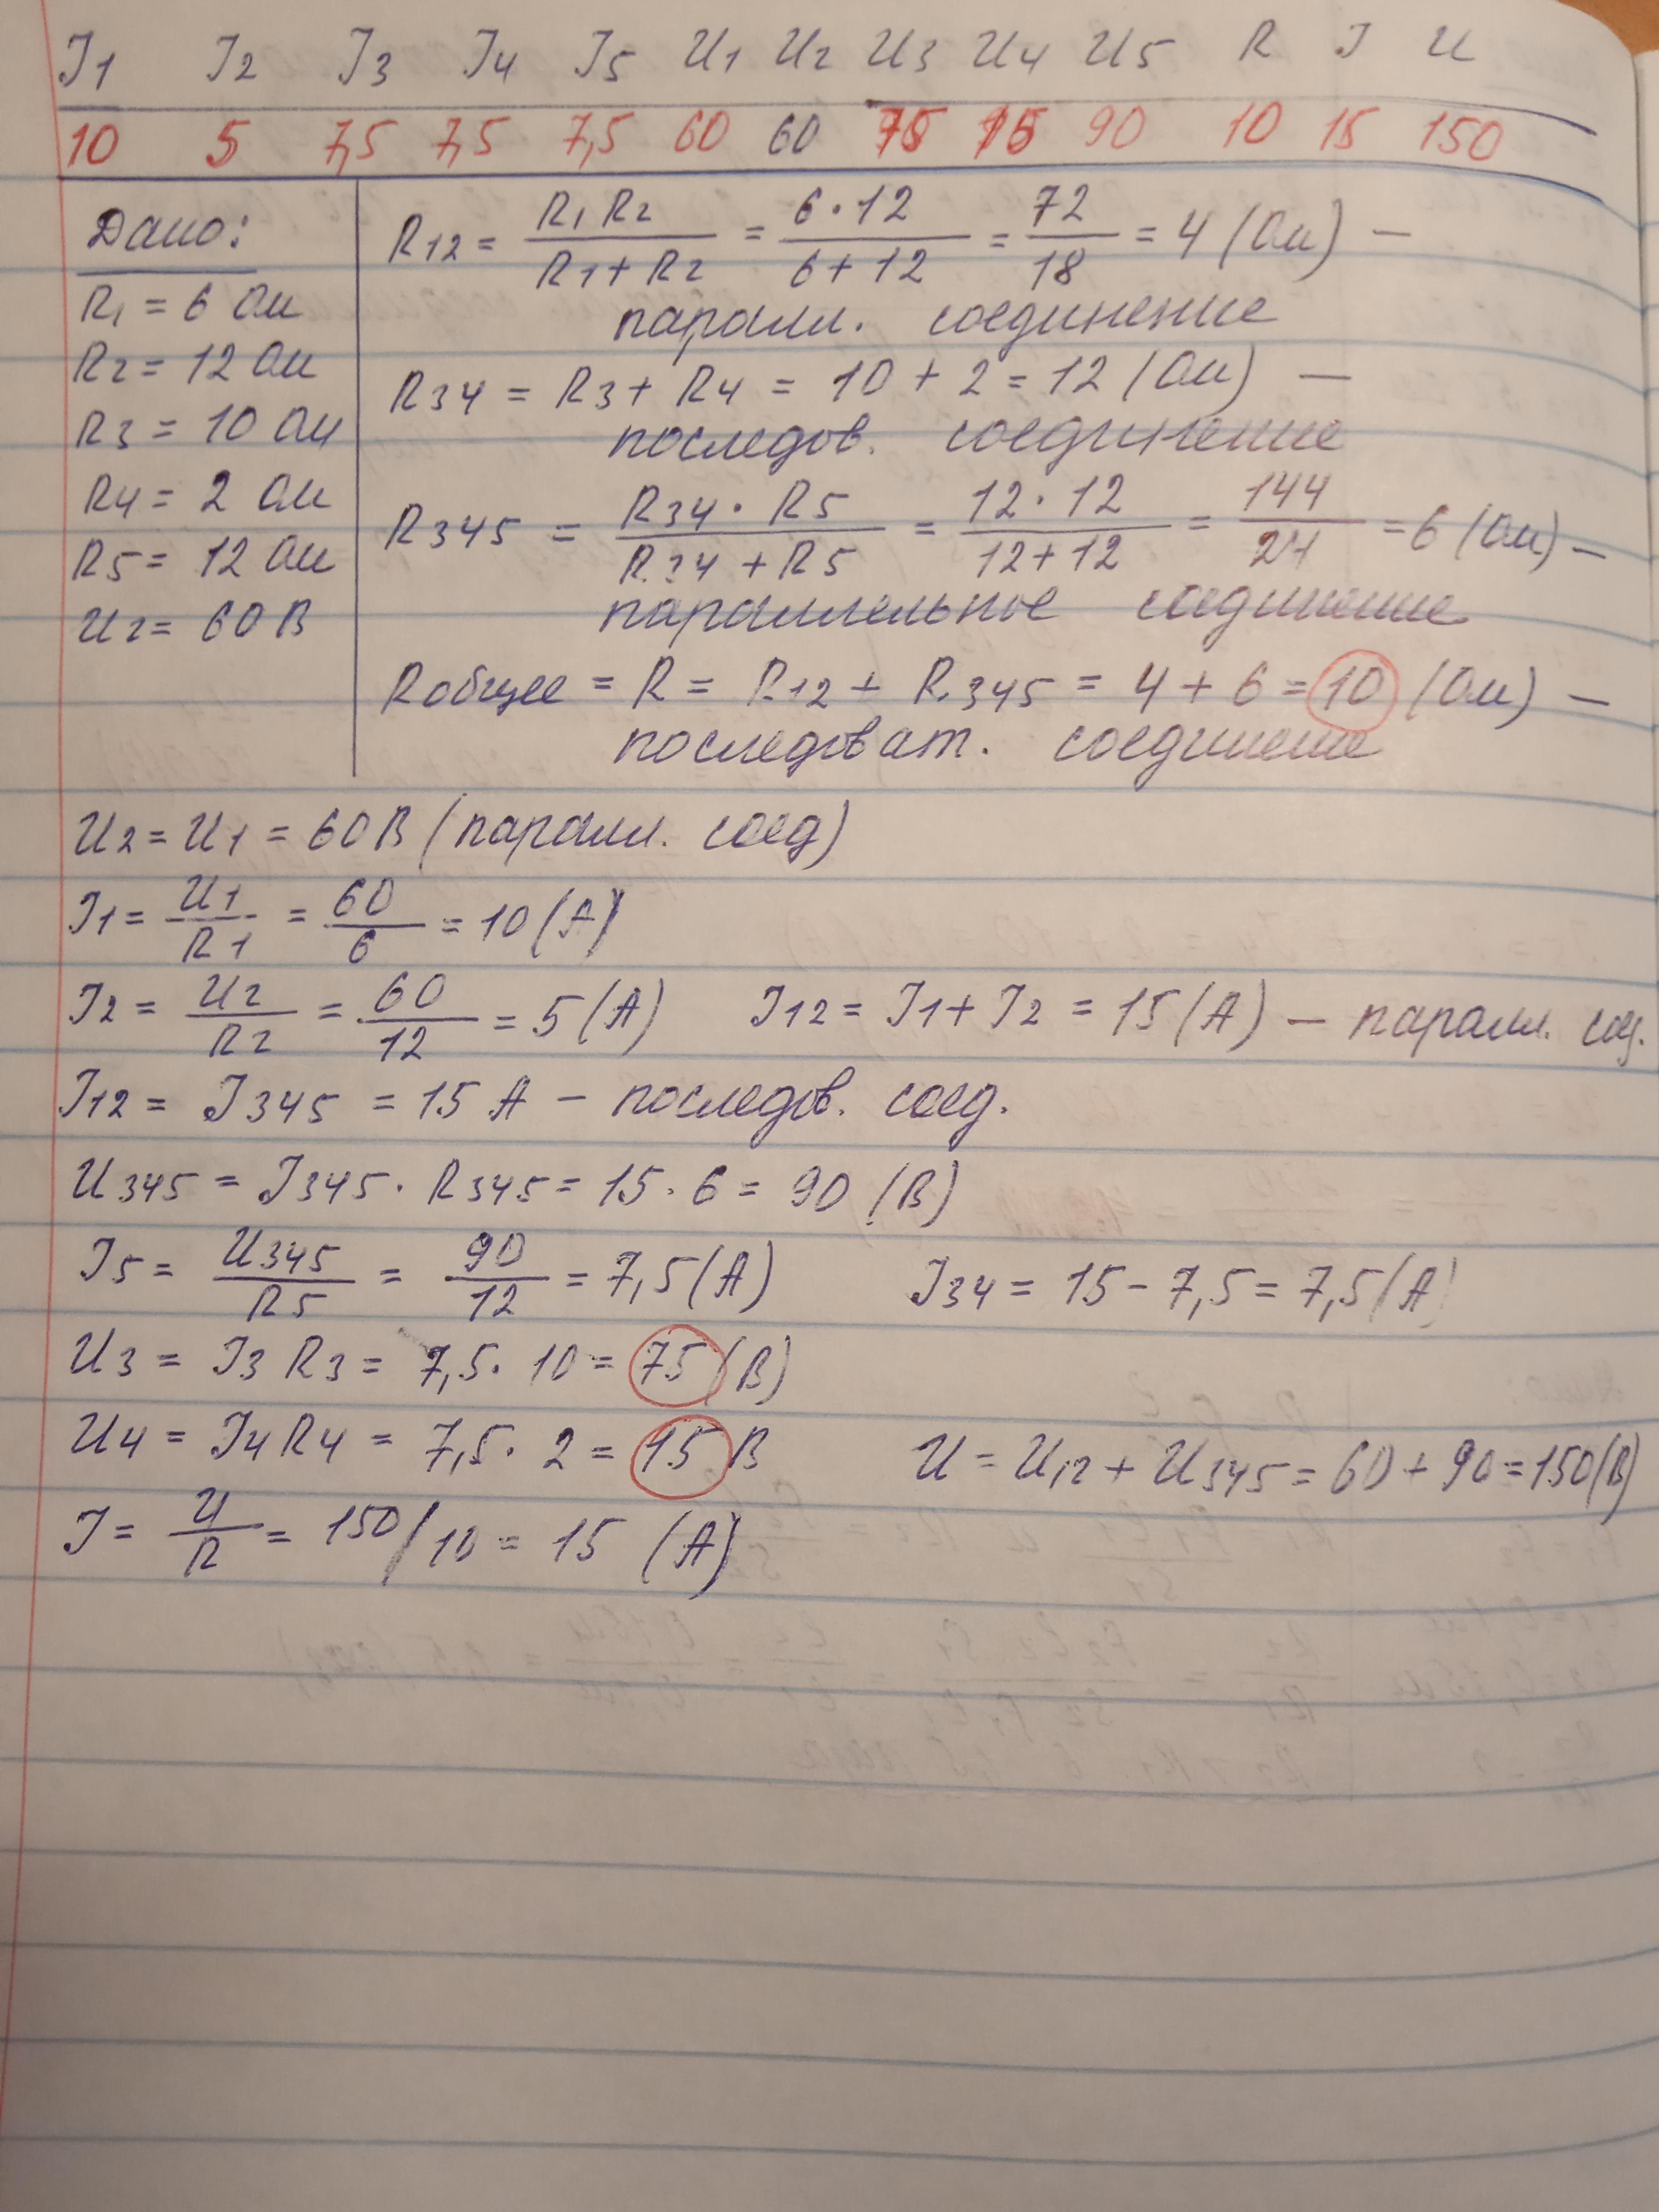 I1 I2 I3 I4 I5 U1 U2 U3 U4 U5 R I U
10 5 7,5 7,5 7,5 60 60 75 15 90 10 15 150
Дано:
R1 = 6 Ом
R2 = 12 Ом
R3 = 10 Ом
R4 = 2 Ом
R5 = 12 Ом
U2 = 60 В
R12 = R1 R2 / R1 + R2 = 6 · 12 / 6 + 12 = 72 / 18 = 4 (Ом) —
паралл. соединение
R34 = R3 + R4 = 10 + 2 = 12 (Ом) —
последов. соединение
R345 = R34 · R5 / R34 + R5 = 12 · 12 / 12 + 12 = 144 / 24 = 6 (Ом) —
параллельное соединение
Rобщее = R = R12 + R345 = 4 + 6 = 10 (Ом) —
последоват. соединение
U2 = U1 = 60 В (паралл. соед)
I1 = U1 / R1 = 60 / 6 = 10 (А)
I2 = U2 / R2 = 60 / 12 = 5 (А) I12 = I1 + I2 = 15 (А) — паралл. соед.
I12 = I345 = 15 А — последов. соед.
U345 = I345 · R345 = 15 · 6 = 90 (В)
I5 = U345 / R5 = 90 / 12 = 7,5 (А) I34 = 15 - 7,5 = 7,5 (А)
U3 = I3 R3 = 7,5 · 10 = 75 (В)
U4 = I4 R4 = 7,5 · 2 = 15 В U = U12 + U345 = 60 + 90 = 150 (В)
I = U / R = 150 / 10 = 15 (А)